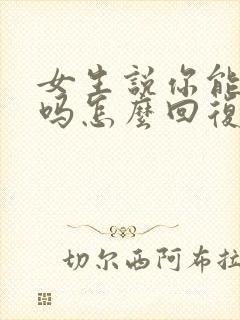 女生説你能
吗怎麽回復
切尔西阿布拉